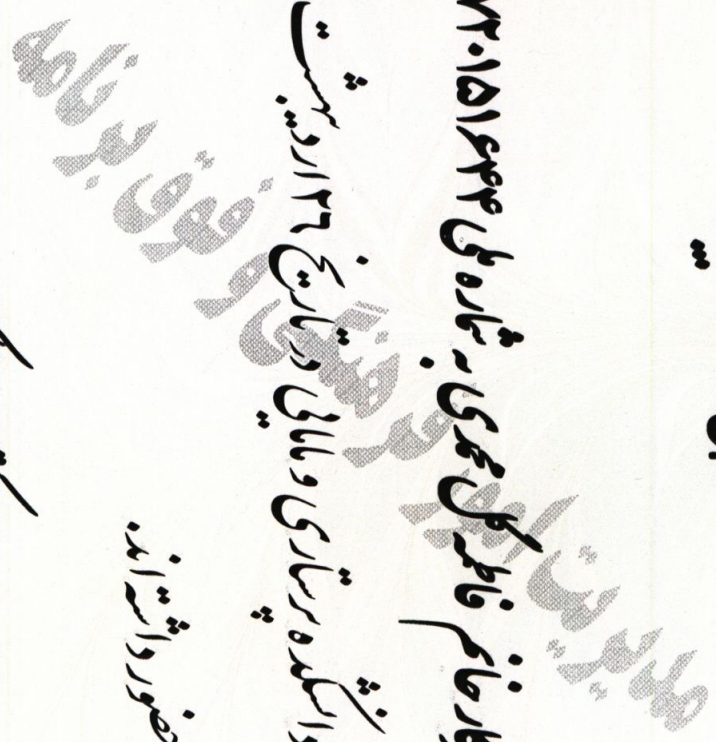 خانم فاطمه گل محمدی به شماره ملی
دانشکده پرستاری و مامایی در تاریخ ۲۶ اردیبهشت
حضور داشته اند.
مدیریت امور فرهنگی و فوق برنامه